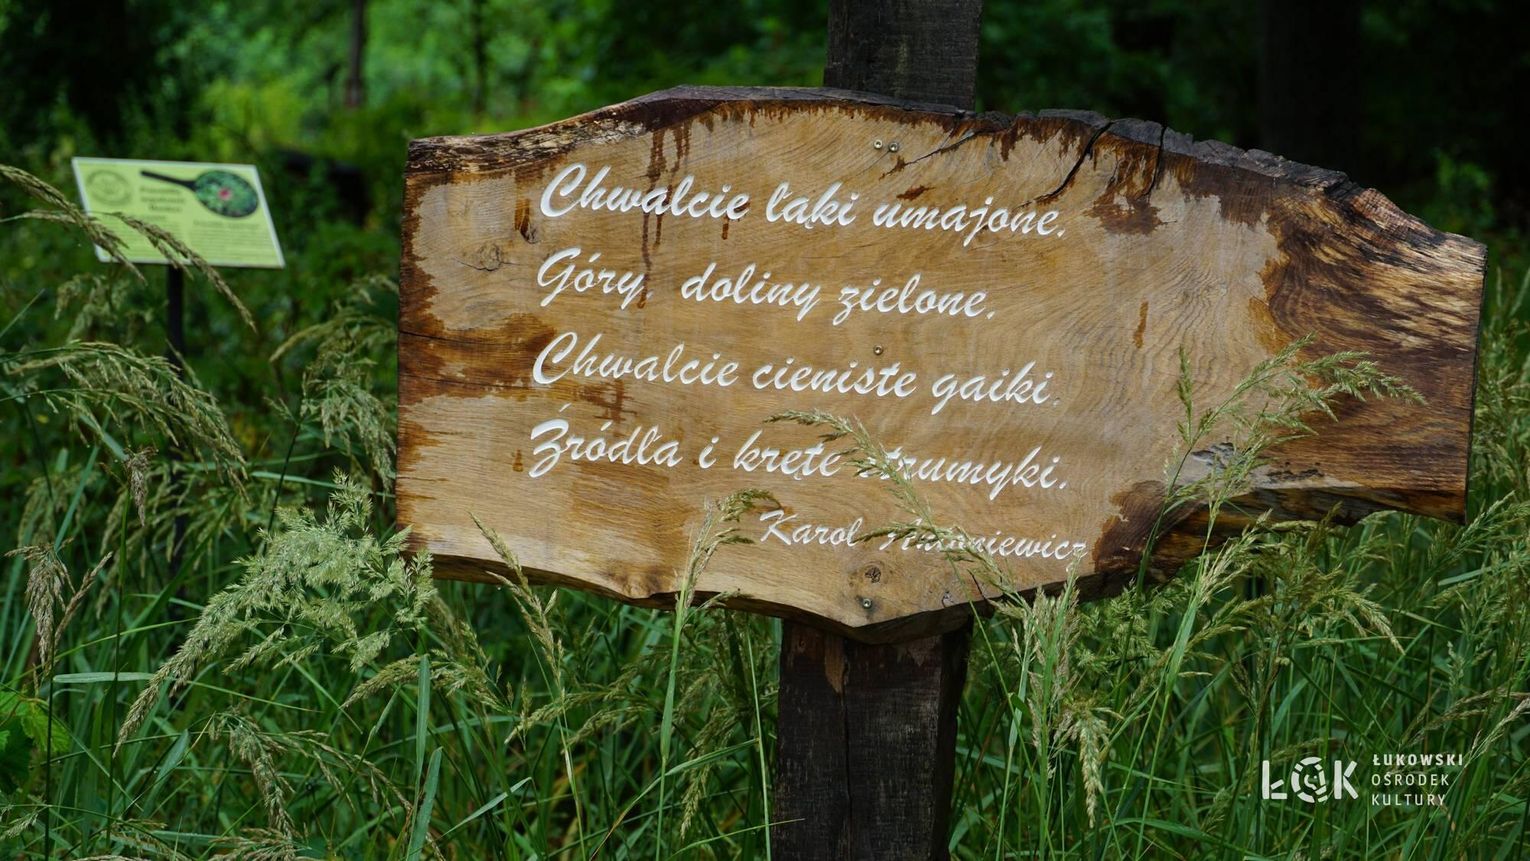 Chwalcie łąki umajone,
Góry, doliny zielone.
Chwalcie cieniste gaiki,
Źródła i kręte strumyki.
Karol Antoniewicz
ŁOK
ŁUKOWSKI
OŚRODEK
KULTURY